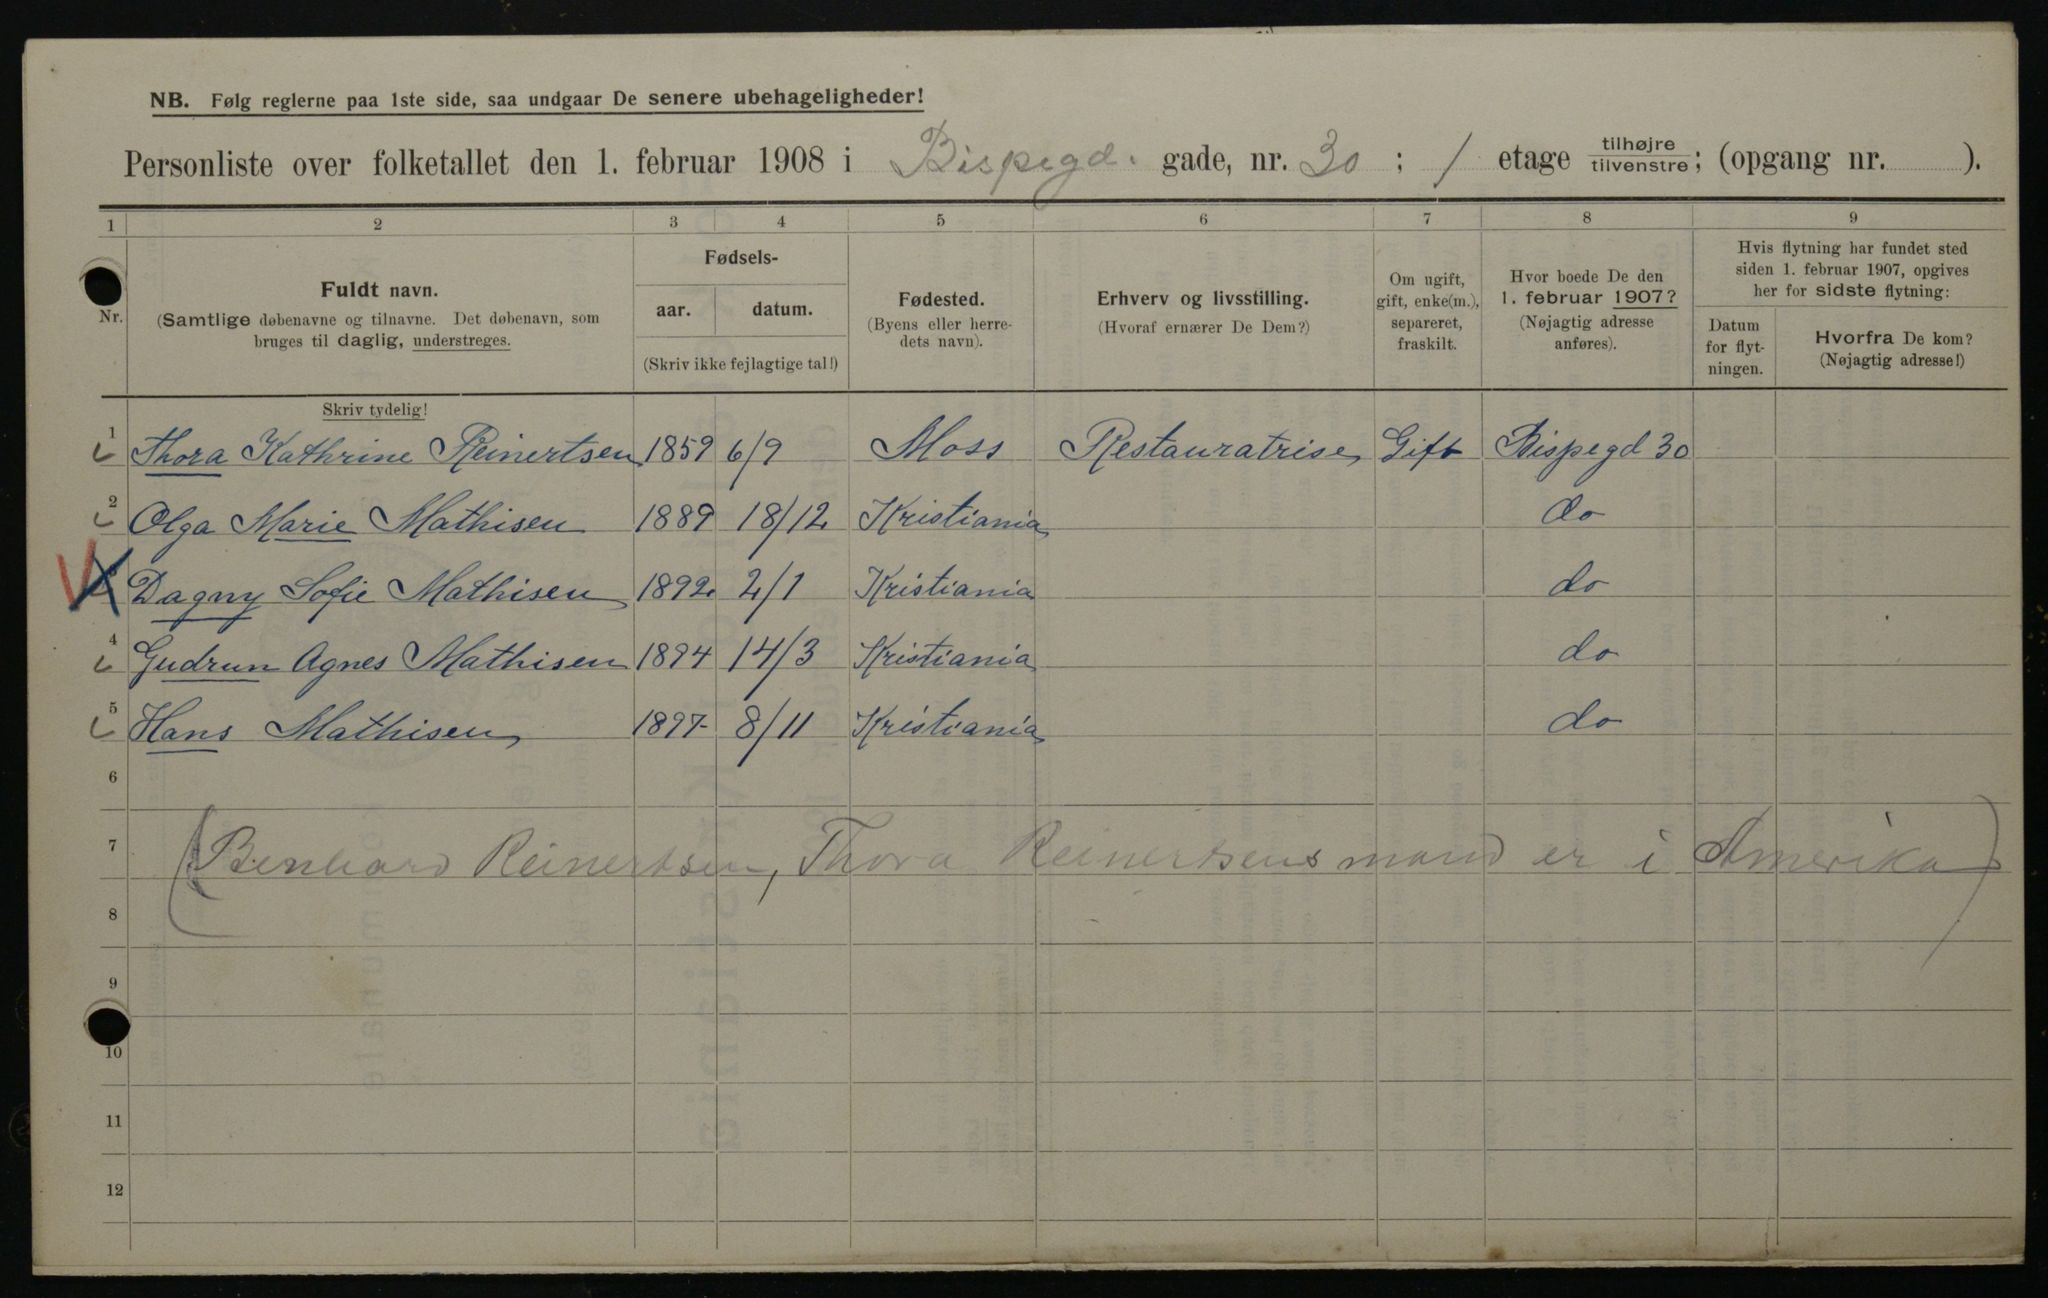 NB. Følg reglerne paa 1ste side, saa undgaar De senere ubehageligheder!
Personliste over folketallet den 1. februar 1908 i Bispegd. gade, nr. 30 ; 1 etage tilhøjre / tilvenstre ; (opgang nr. ).
1 2 3 4 5 6 7 8 9
Nr.
Fuldt navn.
(Samtlige døbenavne og tilnavne. Det døbenavn, som
bruges til daglig, understreges.
Skriv tydelig!
Fødsels-
aar. datum.
(Skriv ikke fejlagtige tal!)
Fødested.
(Byens eller herre-
dets navn).
Erhverv og livsstilling.
(Hvoraf ernærer De Dem?)
Om ugift,
gift, enke(m.),
separeret,
fraskilt.
Hvor boede De den
1. februar 1907?
(Nøjagtig adresse
anføres).
Hvis flytning har fundet sted
siden 1. februar 1907, opgives
her for sidste flytning:
Datum
for flyt-
ningen.
Hvorfra De kom?
(Nøjagtig adresse!)
1 Thora Kathrine Reinertsen 1859 6/9 Moss Restauratrise Gift Bispegd 30
2 Olga Marie Mathisen 1889 18/12 Kristiania do
Dagny Sofie Mathisen 1892 2/1 Kristiania do
4 Gudrun Agnes Mathisen 1894 14/3 Kristiania do
5 Hans Mathisen 1897 8/11 Kristiania do
6
7 (Benhard Reinertsen, Thora Reinertsens mand er i Amerika)
8
9
10
11
12